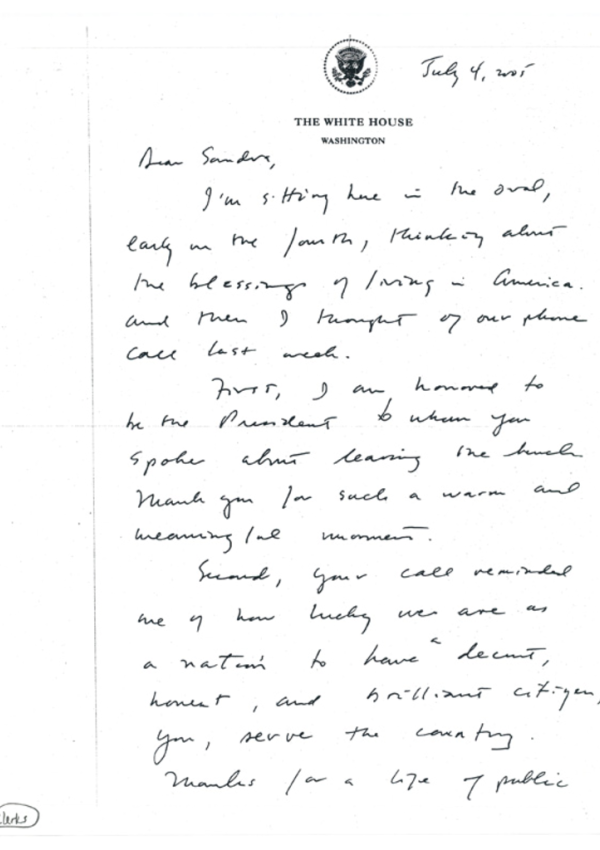 July 4, 2005
THE WHITE HOUSE
WASHINGTON
Dear Sandra,
I'm sitting here in the oval,
early on the fourth, thinking about
the blessings of living in America.
and then I thought of our phone
call last week.
First, I am honored to
be the President to whom you
spoke about leaving the bench.
Thank you for such a warm and
meaningful moment.
Second, your call reminded
me of how lucky we are as
a nation to have a decent,
honest, and brilliant citizen,
you, serve the country.
Thanks for a life of public
clerks